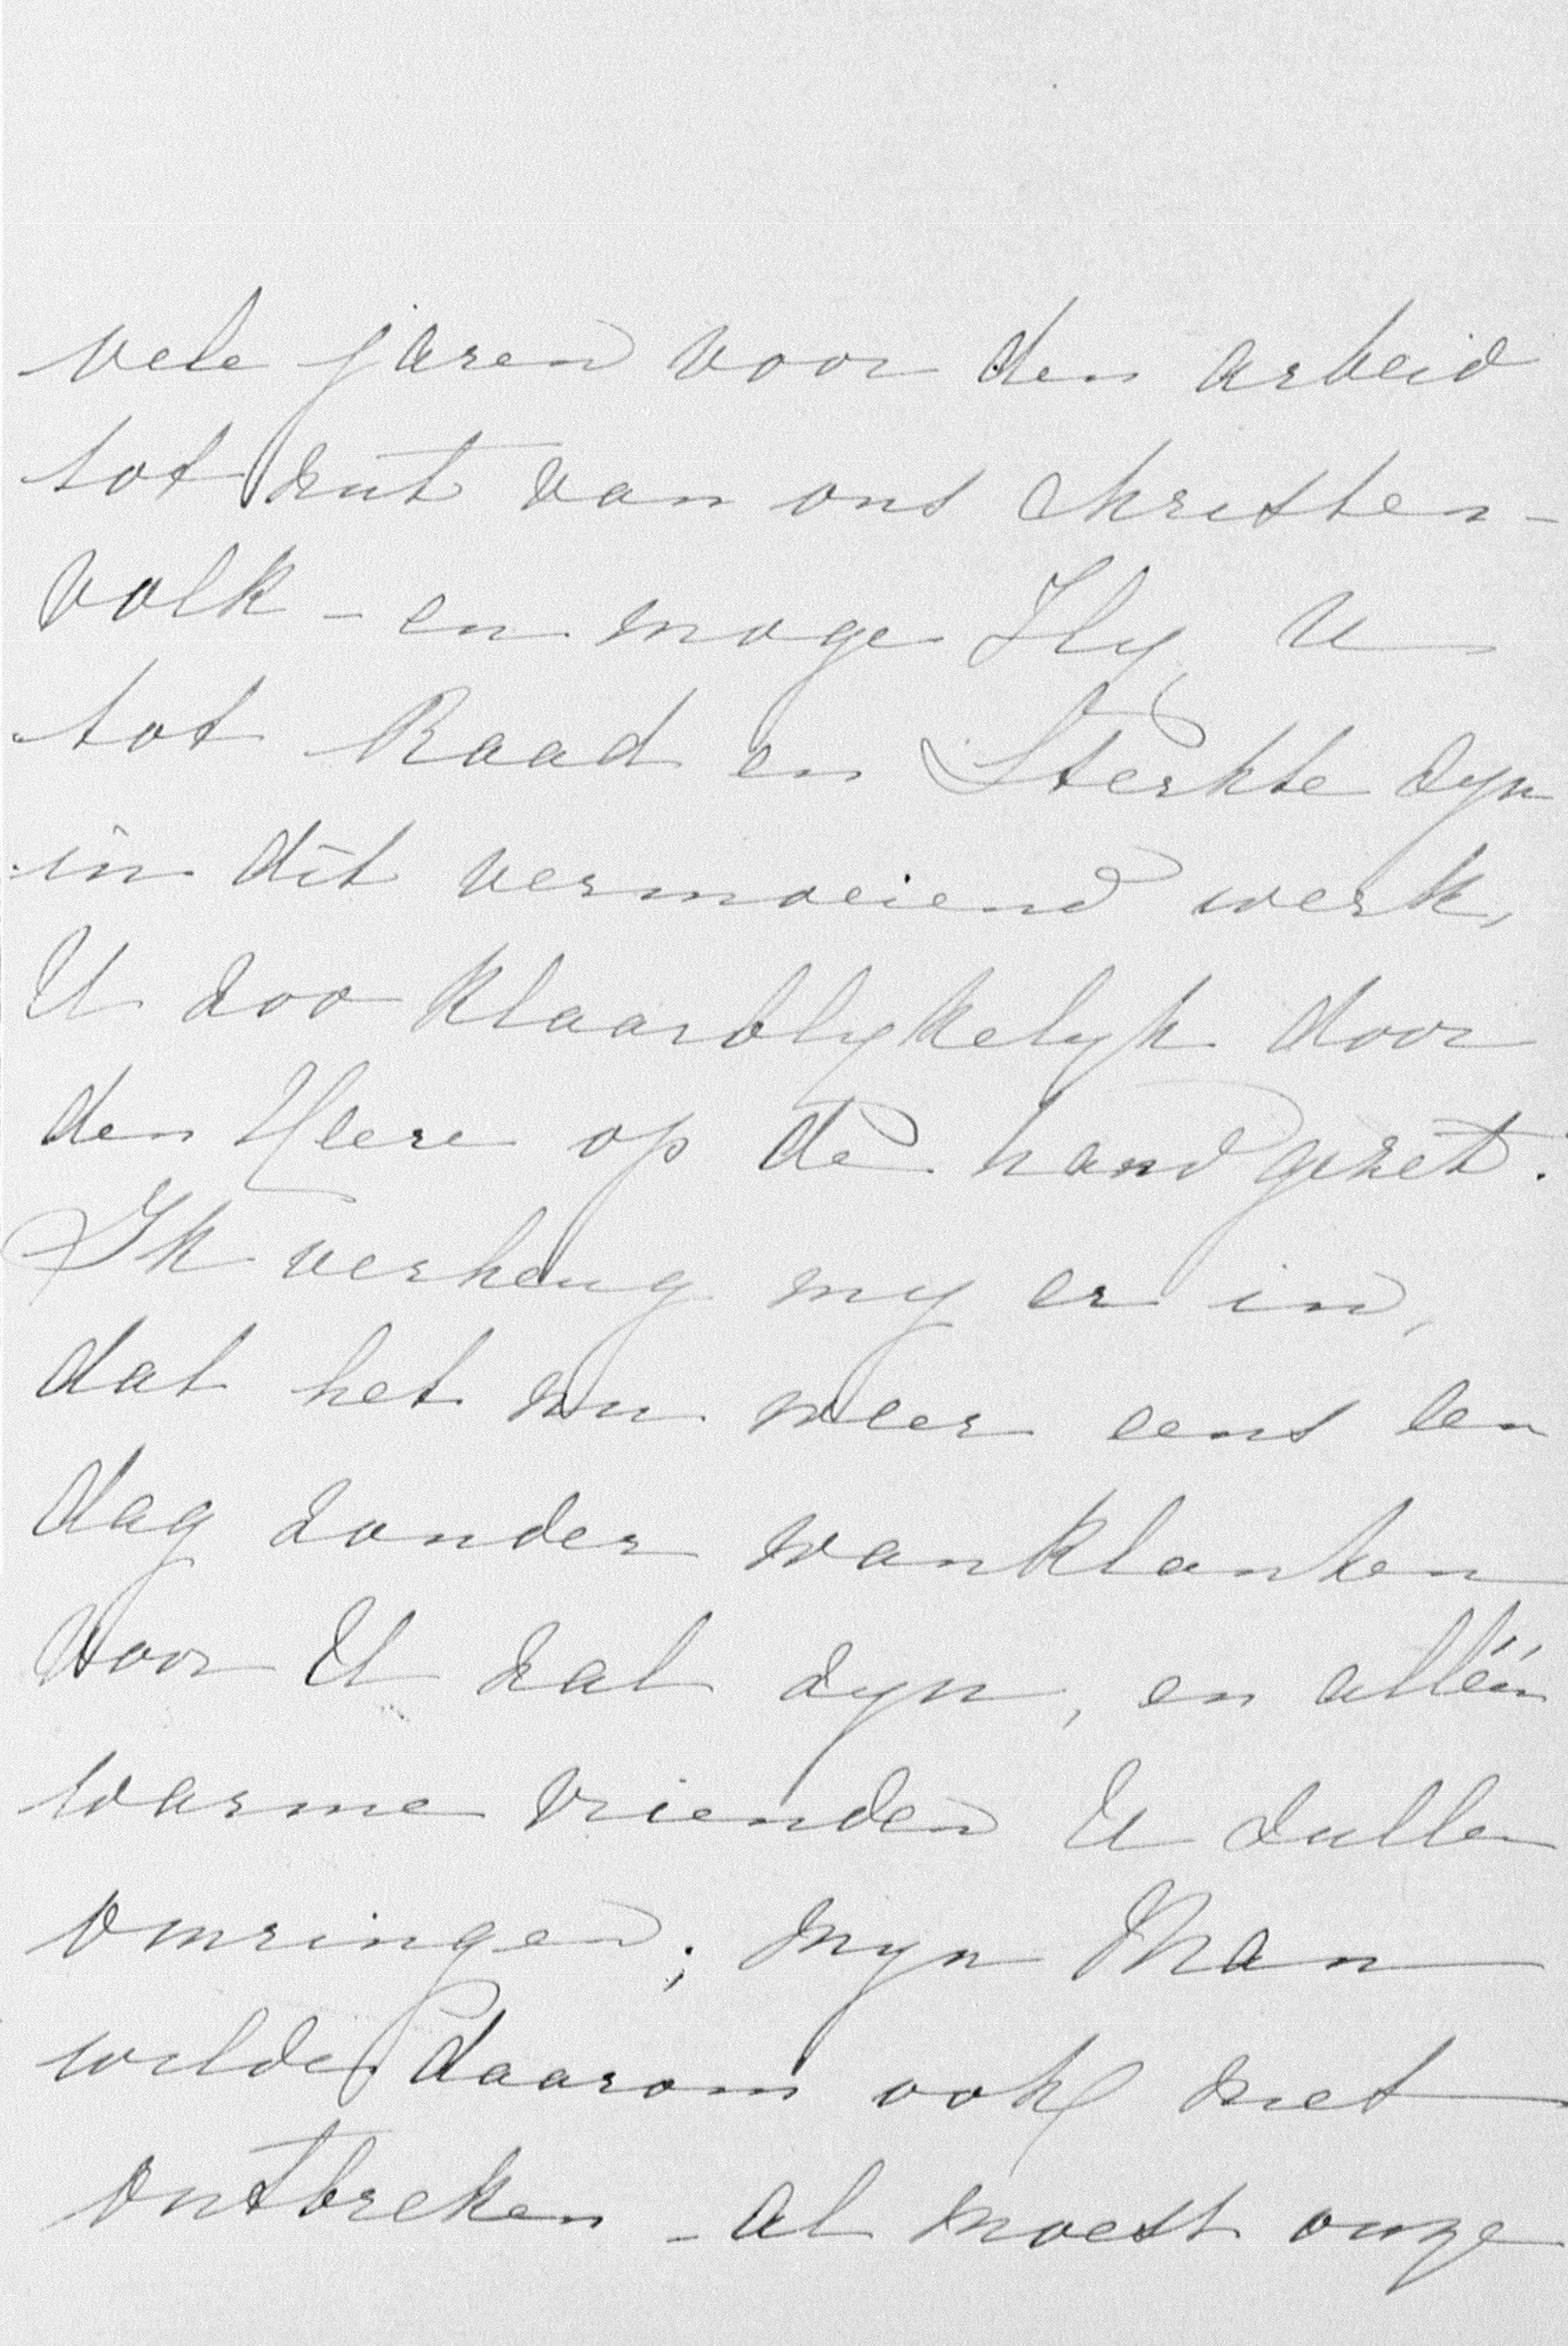 vele jaren voor den arbeid
tot nut van ons christen-
volk - en moge Hy U
tot Raad en Sterkte zyn
in dit vermoeiend werk,
U zoo klaarblykelyk door
den Heere op de hand gezet.
Ik verheug my er in,
dat het nu weer eens een
dag zonder wanklanken
voor U zal zyn, en alléén
warme vrienden U zullen
omringen; myn Man
wilde daarom ook niet
ontbreken - al moest onze